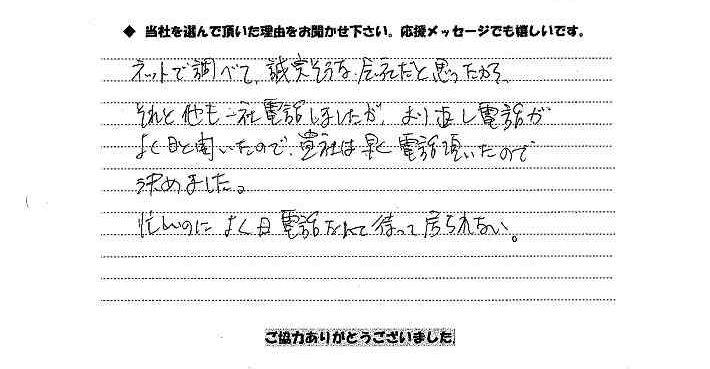 ◆ 当社を選んで頂いた理由をお聞かせ下さい。応援メッセージでも嬉しいです。
ネットで調べて、誠実そうな会社だと思ったから。
それと他も一社電話しましたが、おり返し電話が
よく日と聞いたので、貴社は早く電話頂いたので
決めました。
忙しいのによく日電話なんて待って居られない。
ご協力ありがとうございました